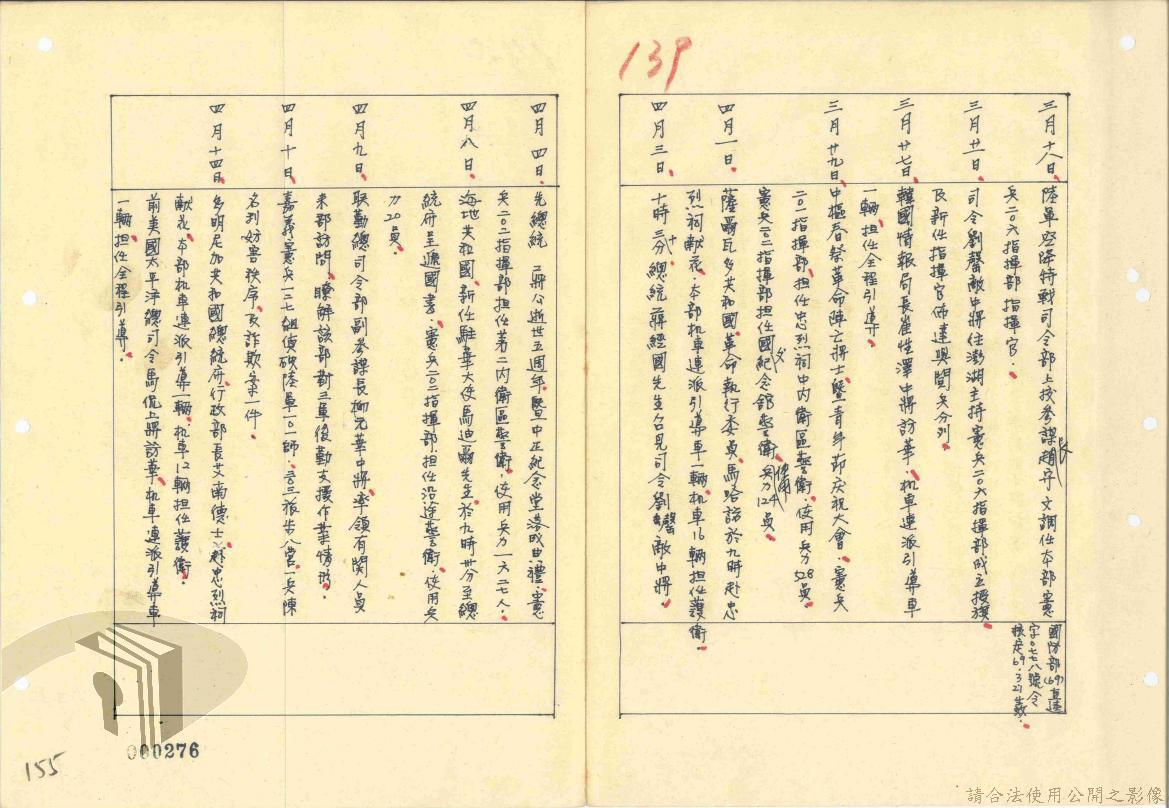 139
三月十八日、
陸軍空降特戰司令部上校參謀長趙守文調任本部憲
兵二〇六指揮部指揮官。
國防部(69)直達
字〇七七八號令
核定69.3.21生效.
三月廿一日、
司令劉罄敵中將往澎湖主持憲兵二〇六指揮部成立授旗
及新任指揮官佈達與閱兵分列、
三月廿七日、
韓國情報局長崔性澤中將訪華、机車連派引導車
一輛、担任全程引導。
三月廿九日、
中樞春祭革命陣亡將士暨青年節庆祝大會、憲兵
二〇一指揮部、担任忠烈祠中內衛區警衛、使用兵力528員、
憲兵二〇二指揮部担任國父紀念館警衛、使用兵力124員、
四月一日、
薩爾瓦多共和國、革命執行委員馬諾訪於九時赴忠
烈祠献花、本部机車連派引導車一輛、机車16輛担任護衛.
四月三日、
十時十三分、總統蔣經國先生召見司令劉罄敵中將、
四月四日、
先總統 蔣公逝世五週年、暨中正紀念堂落成典禮、憲
兵二〇二指揮部担任第二內衛區警衛、使用兵力一六二七人.
四月八日、
海地共和國、新任駐華大使馬迪爾先生、於九時卅分至總
統府呈遞國書、憲兵二〇二指揮部、担任沿途警衛、使用兵
力20員.
四月九日、
聯勤總司令部副參謀長柳元華中將、率領有関人員
來部訪問、瞭解該部對三軍後勤支援作業情形.
四月十日、
嘉義憲兵一二七組偵破陸軍一〇一師、三三旅步八營一兵陳
名刊妨害秩序、及詐欺案一件.
四月十四日、
多明尼加共和國總統府行政部長艾南德士、赴忠烈祠
献花、本部机車連派引導一輛、机車12輛担任護衛、
前美國太平洋總司令馬侃上將訪華、机車連派引導車
一輛、担任全程引導.
000276
155
請合法使用公開之影像